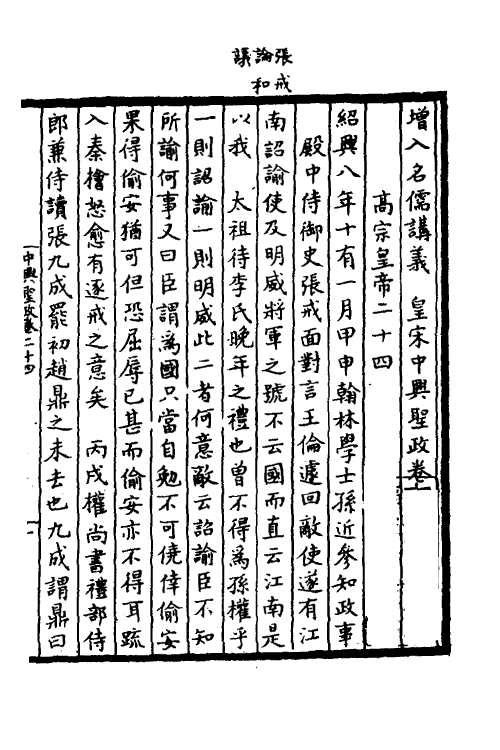 張戒
論和
議
增入名儒講義　皇宋中興聖政卷
高宗皇帝二十四
紹興八年十有一月甲申翰林學士孫近參知政事
殿中侍御史張戒面對言王倫遽回敵使遂有江
南詔諭使及明威將軍之號不云國而直云江南是
以我　太祖待李氏晚年之禮也曾不得爲孫權乎
一則詔諭一則明威此二者何意敵云詔諭臣不知
所諭何事又曰臣謂爲國只當自勉不可僥倖偷安
果得偷安猶可但恐屈辱已甚而偷安亦不得耳疏
入秦檜怒愈有逐戒之意矣　丙戌權尚書禮部侍
郎兼侍讀張九成罷初趙鼎之未去也九成謂鼎曰
中興聖政卷二十四
一